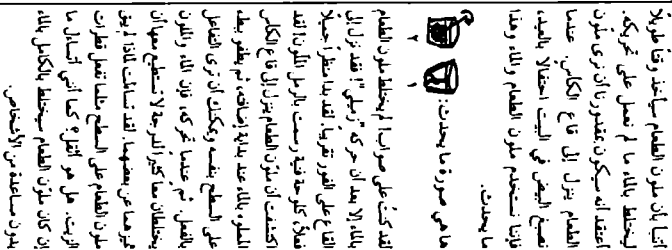 أتنبأ بأن ملون الطعام سيأخذ وقتا طويلا
يختلط بالماء ما لم نعمل على تحريكه.
أعتقد أنه سيكون بمقدورنا أن نرى ملون
الطعام ينزل إلى قاع الكأس. عندما
نصبغ البيض في البيت احتفالا بالعيد،
فإننا نستخدم ملون الطعام والماء وهذا
ما يحدث.
ها هي صورة ما يحدث:
١ ٢
لقد كنت على صواب! لم يختلط ملون الطعام
بالماء إلا بعد أن حركه "رسلي"! لقد نزل إلى
القاع على الفور تقريبا. لقد بدا منظرا جميلا
فعلا، كلوحة فنية رسمت بالرمل الملون! لقد
اكتشفت أن ملون الطعام ينزل إلى قاع الكأس
المملوء بالماء عند بداية إضافته، ثم يطفو
على السطح بنفسه ويمكنك أن ترى التفاعل
بالفعل. ثم عندما تحركه، فإن الماء والملون
يختلطان معا كثيرا لدرجة لا تستطيع معها أن
تميزهما عن بعضهما. لقد تساءلت لماذا لم يبق
ملون الطعام على السطح مثلما تفعل قطرات
الزيت. هل هو أثقل؟ كما أنني أتساءل ما
إن كان ملون الطعام سيختلط بالكامل بالماء
بدون مساعدة من الأشخاص.